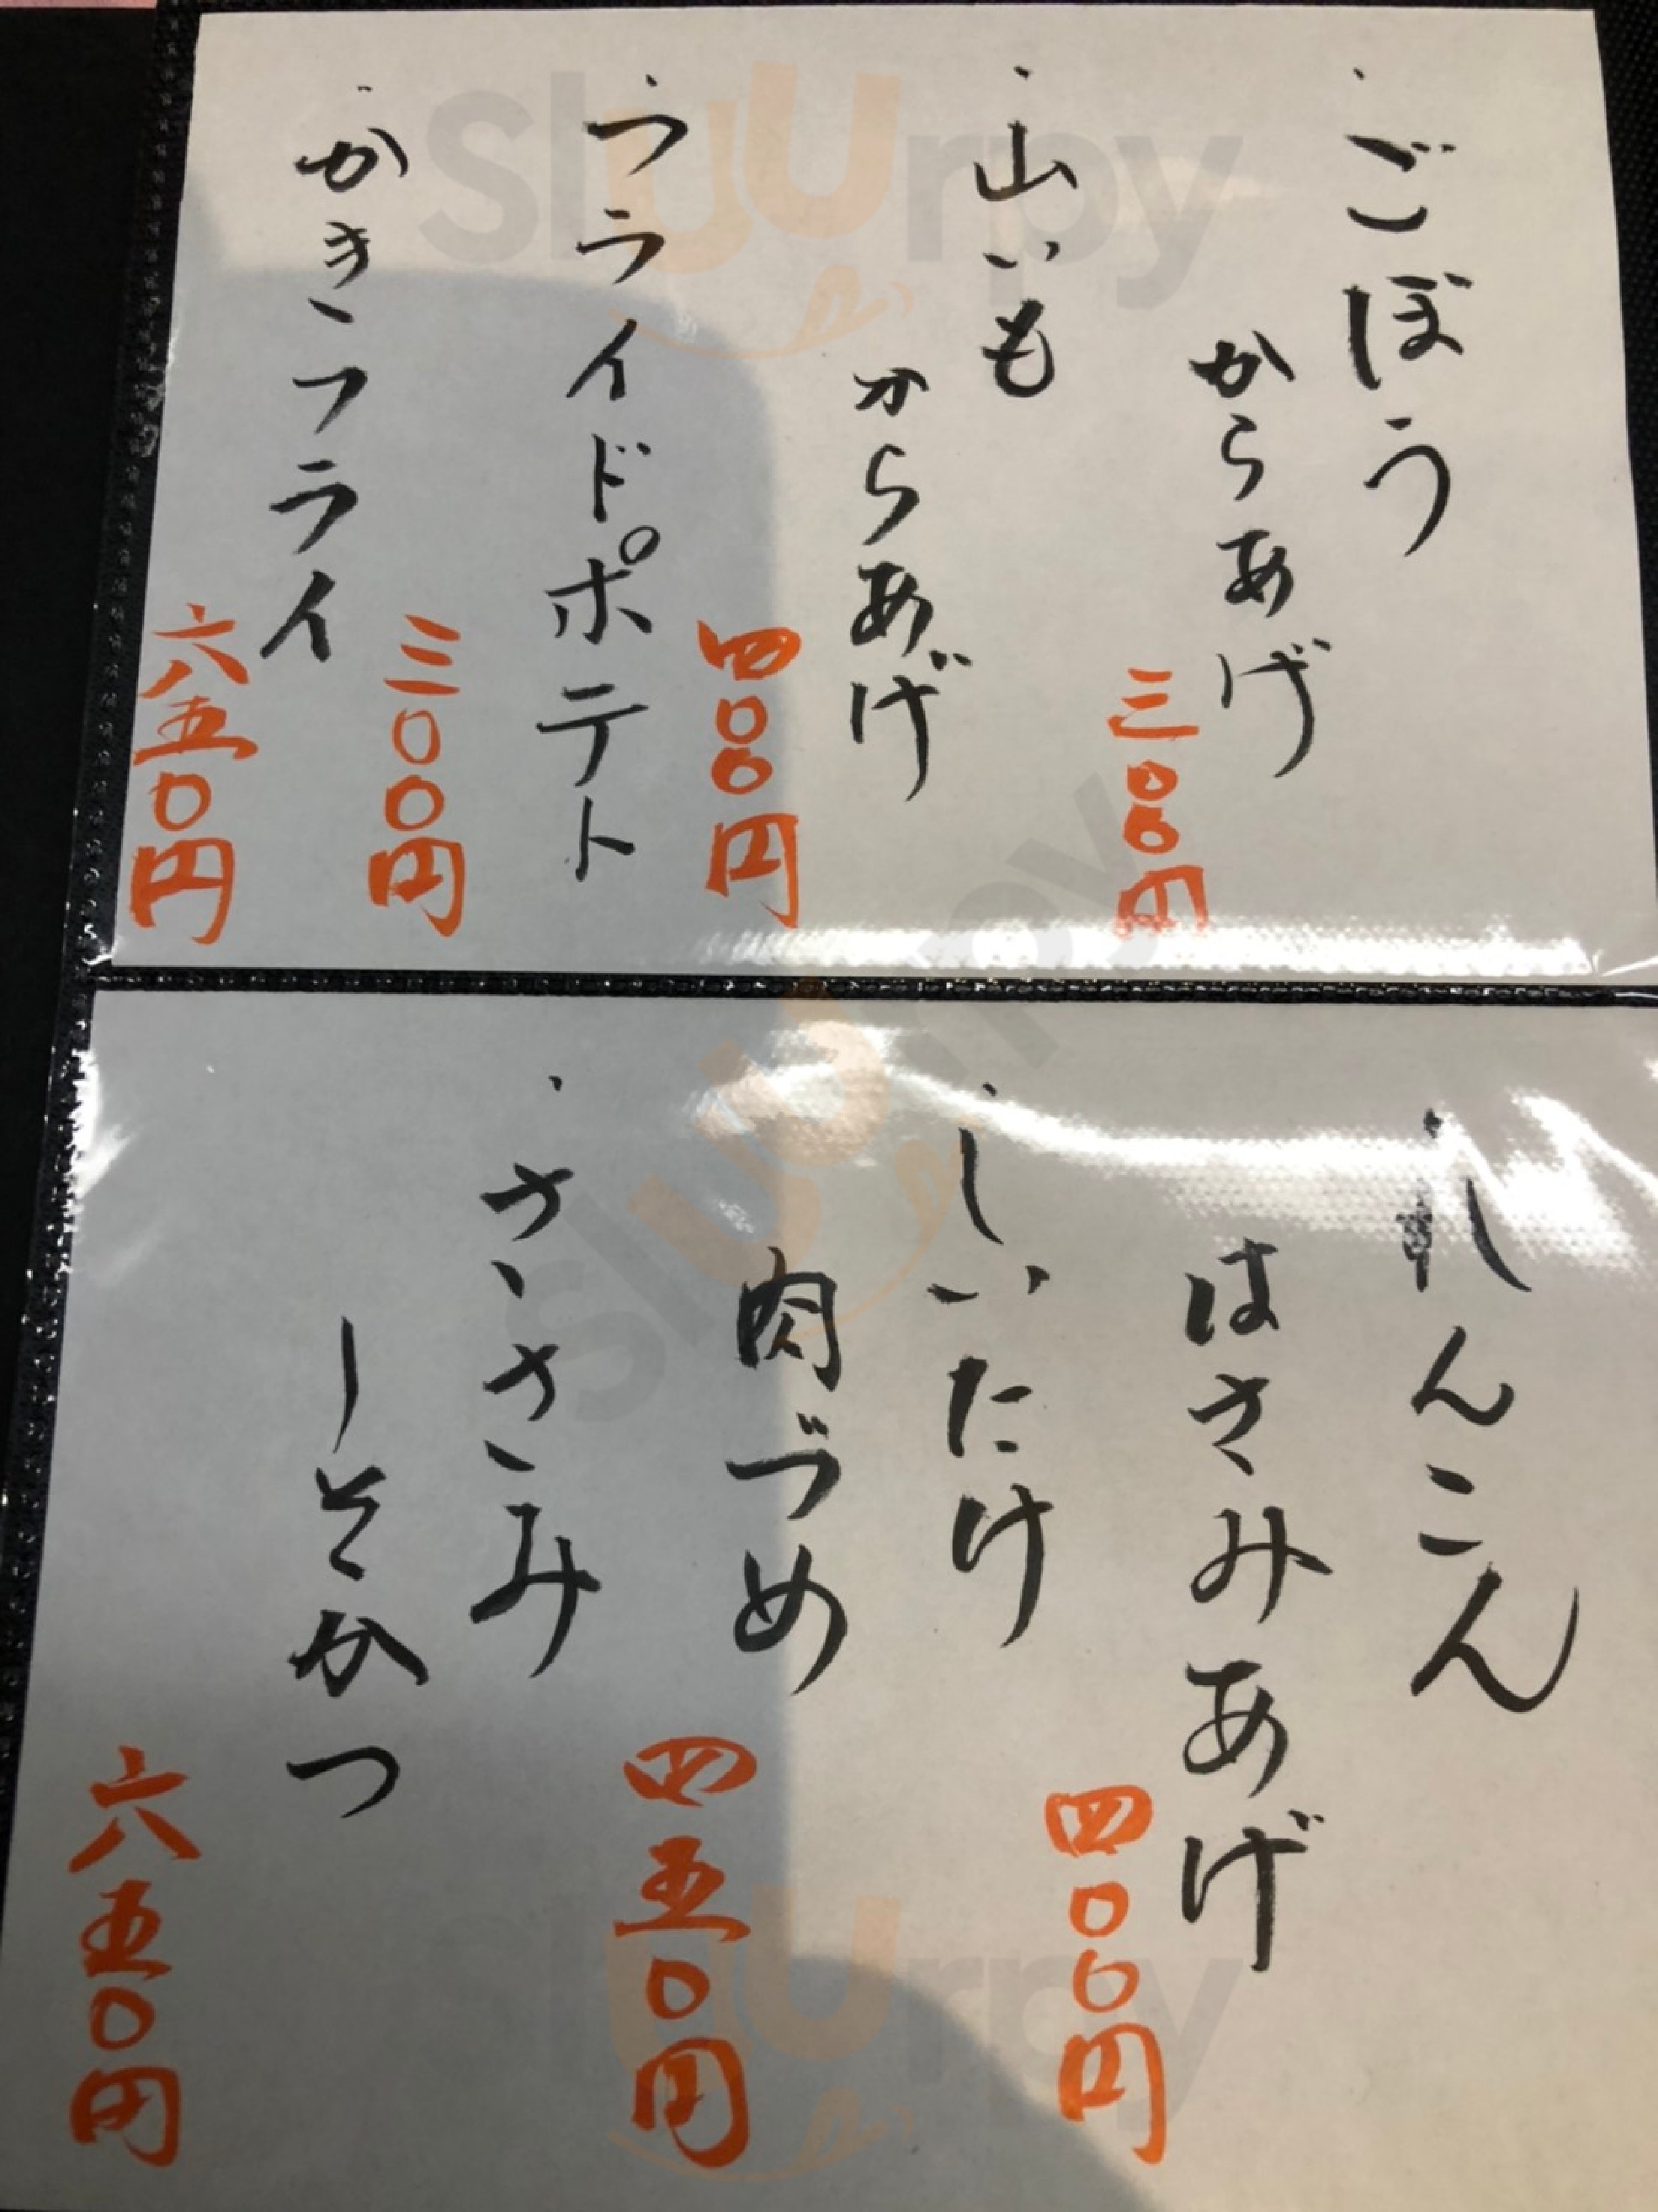 ・ごぼう
からあげ
三〇〇円
・山いも
からあげ
四〇〇円
・フライドポテト
三〇〇円
・かきフライ
六五〇円
・れんこん
はさみあげ
四〇〇円
・しいたけ
肉づめ
四五〇円
・ささみ
しそかつ
六五〇円
Sluurpy
Sluurpy
Sluurpy